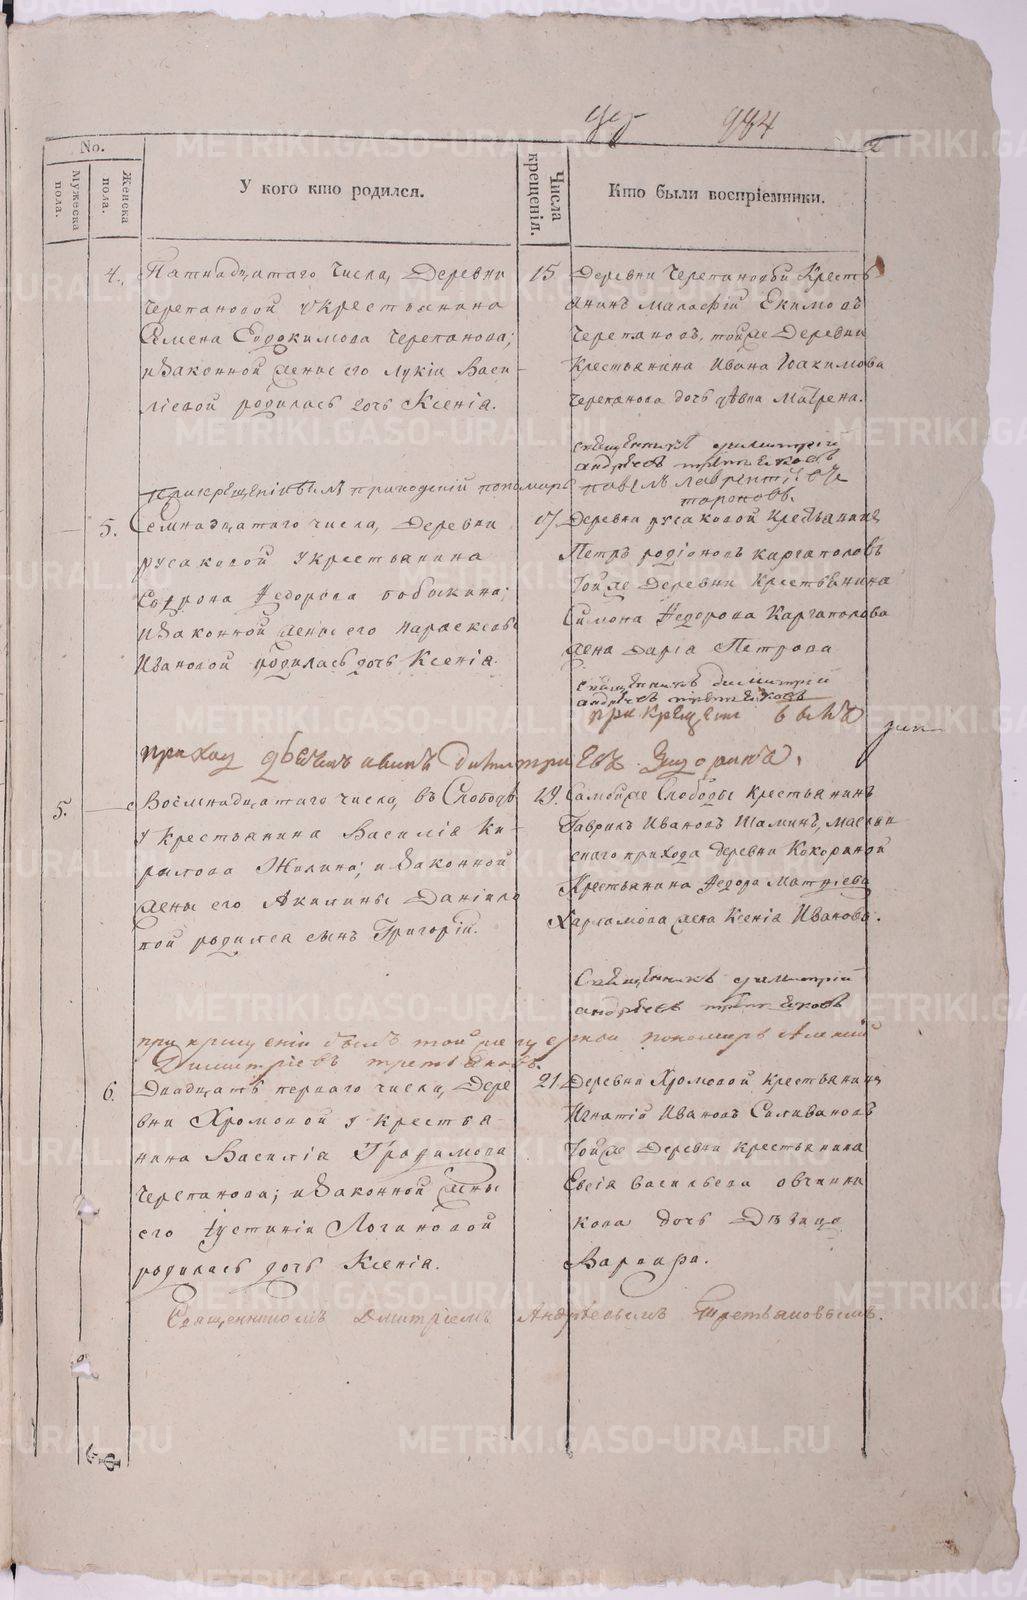 984
No.
Мужеска пола.
Женска пола.
У кого кто родился.
Числа крещенія.
Кто были воспріемники.
4. Пятнадцатаго числа, Деревни
Черепановой у крестьянина
Семена Евдокимова Черепанова;
и законной жены его Лукіи Васи-
ліевой родилась дочь Ксенія.
15. Деревни Черепановой Кресть
янинъ Маласфій Екимовъ
Черепановъ, тойже Деревни
Крестьянина Ивана Іоакимова
Черепанова дочь дѣвка Матрена.
священникъ димитрій
андреевъ третьяковъ
при крещеніи былъ приходскій пономарь павелъ лаврентіевъ
топоровъ.
5. Семнадцатаго числа, Деревни
русаковой у крестьянина
Софрона Федорова бабыкина;
и законной жены его Параскевы
Ивановой родилась дочь Ксенія.
17. Деревни русаковой Крестьянинъ
Петръ родіоновъ каргаполовъ
Тойже Деревни Крестьянина
Симона Федорова Каргаполова
жена Дарія Петрова
священникъ димитрій
андреевъ третьяковъ
при крещеніи былъ
димитріевъ
5. Восемнадцатаго числа, въ Слободѣ
у крестьянина Василія Ки-
рилова Жилина; и законной
жены его Акилины Даніило
вой родился сынъ Григорій.
19. Самойже Слободы крестьянинъ
Гаврилъ Ивановъ Шаминъ, маслян
скаго прихода деревни Кокориной
Крестьянина Федора Матфеева
Харламова жена Ксенія Иванова.
Священникъ димитрій
андреевъ третьяковъ
при крещеніи былъ той же церкви пономарь Алексій
Димитріевъ третьяковъ.
6. Двадцать перваго числа, Дере
вни Хромовой у крестья-
нина Василія Трофимова
Черепанова; и законной жены
его Іустиніи Логиновой
родилась дочь Ксенія.
21. Деревни Хромовой крестьянинъ
Игнатій Ивановъ Саливановъ
Тойже Деревни крестьянина
Евсія васильева овчинни
кова дочь Дѣвица
Варвара.
Священникомъ Дмитріемъ Андреевымъ Третьяковымъ.
METRIKI.GASO-URAL.RU